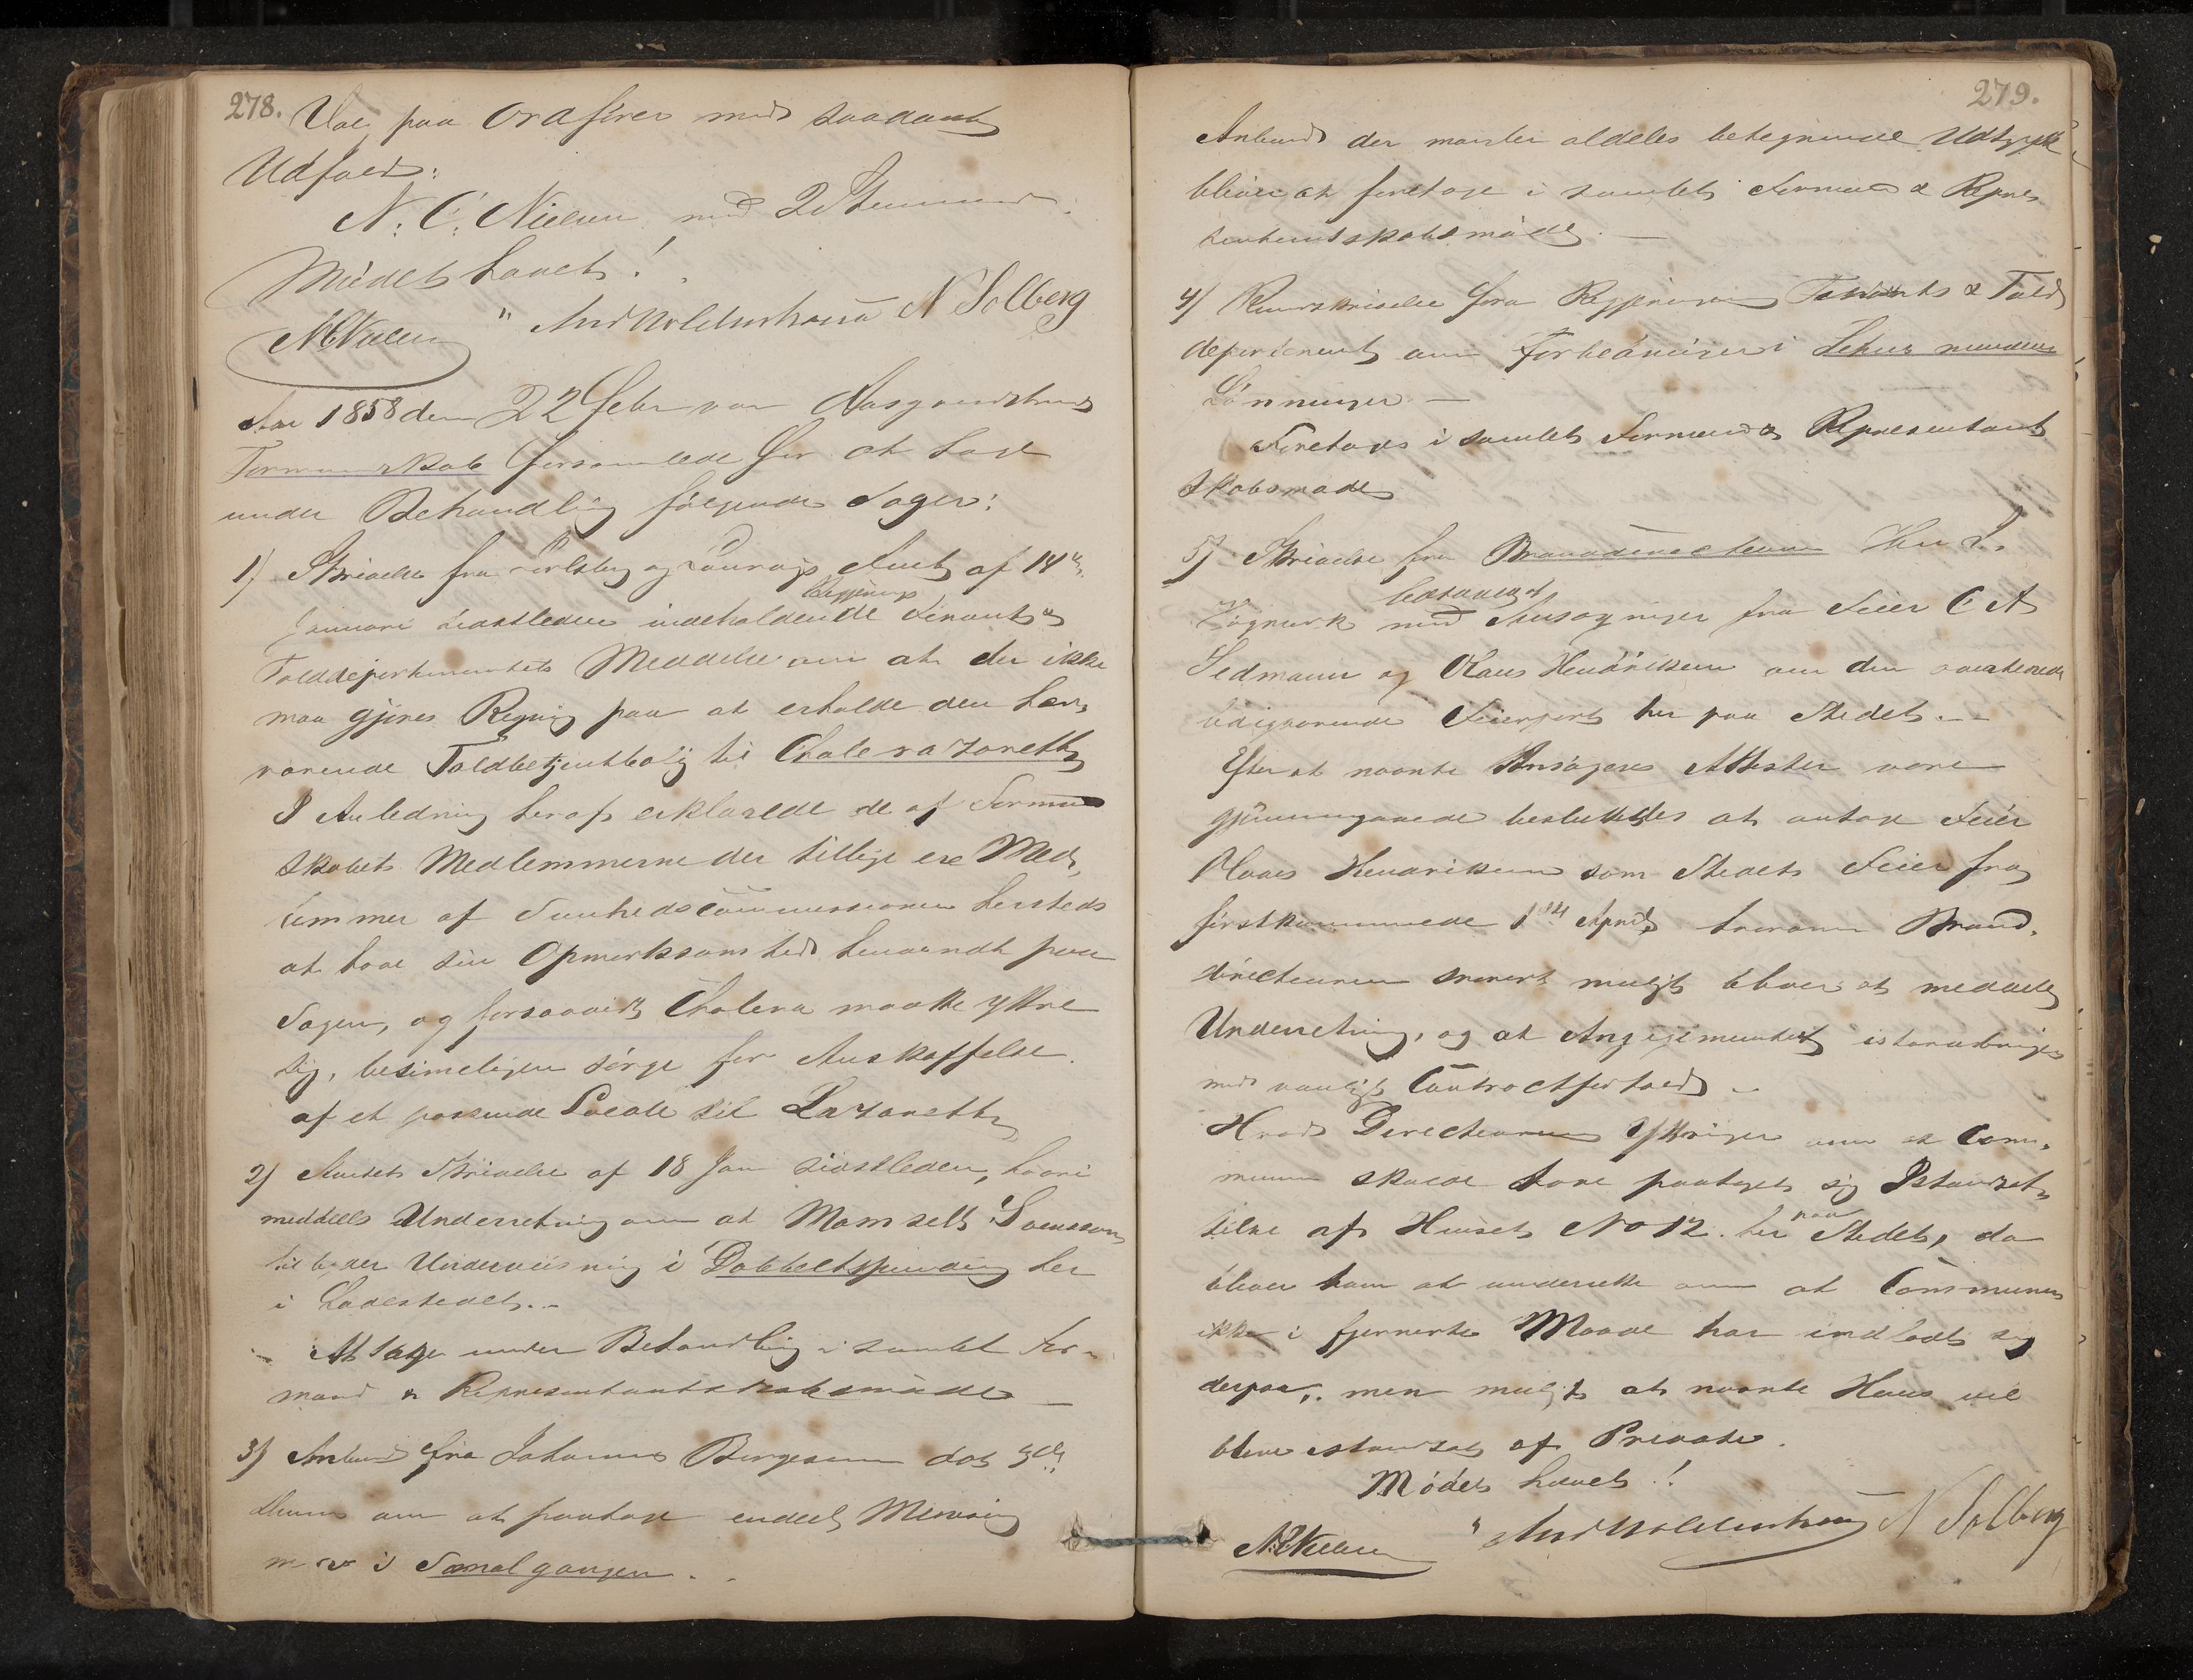 278.
Valg paa Ordfører med saadant
Udfald:
N. C. Nielsen med 2 Stemmer.
Mødet hævet!
NCNielsen " And Holdenhaua N Solberg
Aar 1858 den 22 Febr var Aasgaardstrands
Formandskab forsamlede for at tage
under Behandling følgende Sager:
1) Skrivelse fra Jarlsberg og Laurvigs Amt af 14de
Regjerings
Januari sidstleden indeholdende Finants og
Tolddepartementets Meddelelse om at der ikke
maa gjøres Regning paa at erholde den her
værende Toldbetjentbolig til Choleralazareth
I Anledning heraf erklærede de af Formand
skabets Medlemmerne der tillige ere Med
lemmer af Sunhedscommissionen hersteds
at have sin Opmerksomhed henvendt paa
Sagen, og forsaavidt Cholera maatte yttre
sig, besimeligen sørge for Anskaffelse
af et passende Locale til Lazareth
2) Amtets Skrivelse af 18 Jan sidstleden, hvori
meddeels Underretning om at Mamsell Svensson
tilbyder Underviisning i Dobbeltspinding her
i Ladestedet.-
At tage under Behandling i samlet For-
mand & Repræsentantskabsmøde
3) Anbud fra Johannes Børgesen dat 5de
dennes om at paatage endeel Muring
m. v. i Smalgangen.
279.
Anbud der mangler aldeles betegnende Udtryk
bliver at foretage i samlet Formand & Repræ
sentantskabsmøde.
4) Rundskrivelse fra Regjeringens Finants & Told
departement om Forteanviser i Lehns
Lønninger -
Foretages i samlet Formand & Repræsentant
skabsmøde
5) Skrivelse fra Branddirecteuren Hr L.
betræffende
med Ansøgninger fra Feier C A
Sedmann og Claus Hendriksen om den
ledigværende Feierpost her paa Stedet.-
Efter at nævnte Ansøgeres Attester vare
gjennemgaaede besluttedes at antage Feier
Claus Hendriksen som Stedets Feier fra
førstkommende 1ste April, hvorom Brand-
directeuren snarest muligt bliver at meddele
Underretning, og at Angegementet istandbringes
med vanligt Contractforhold.-
Hvad Directeurens Yttringer om at Com-
munen skulde have paataget sig Istandsæt-
telse af Huset No 12 her paa Stedet, da
bliver ham at underrette om at Communen
ikke i fjerneste Maade har indladt sig
derpaa, men muligt at nævnte Huus vil
blive istandsat af Private.
Mødet hævet!
NCNielsen " And Holdenhaua N Solberg